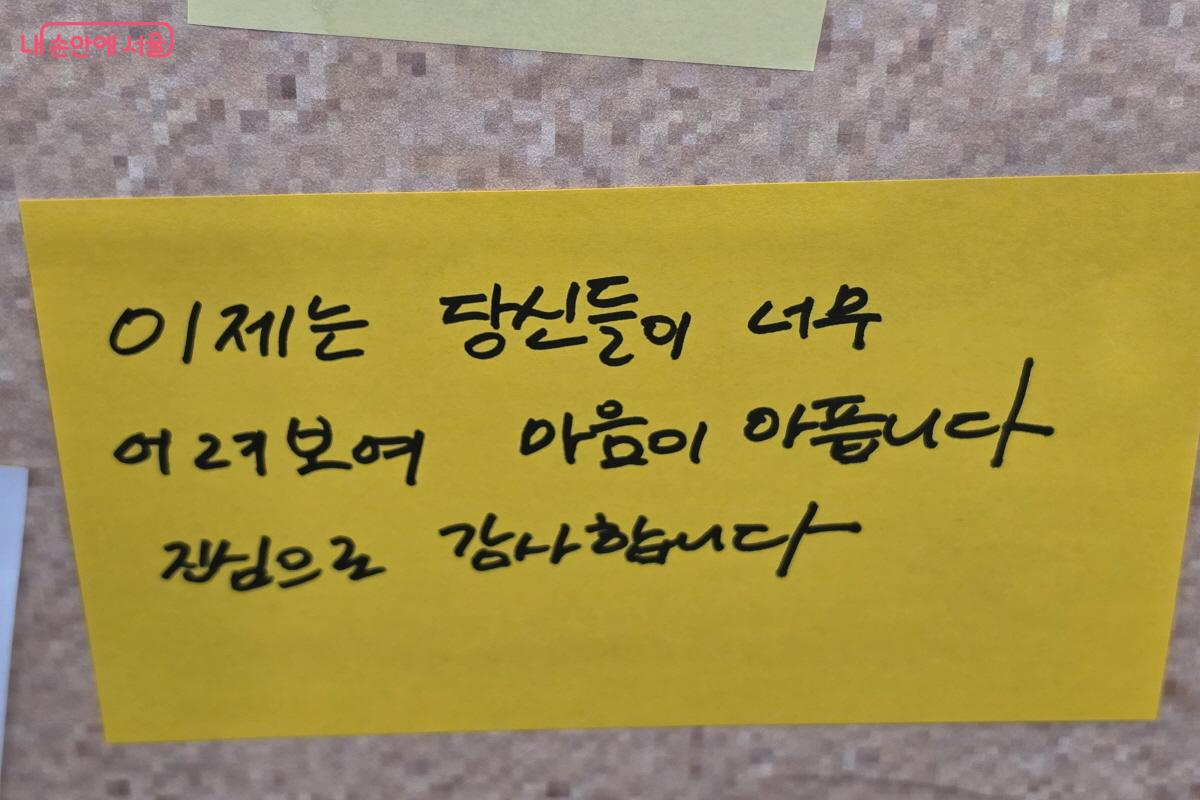 내 손안에 서울
이제는 당신들이 너무
어려보여 마음이 아픕니다
진심으로 감사합니다